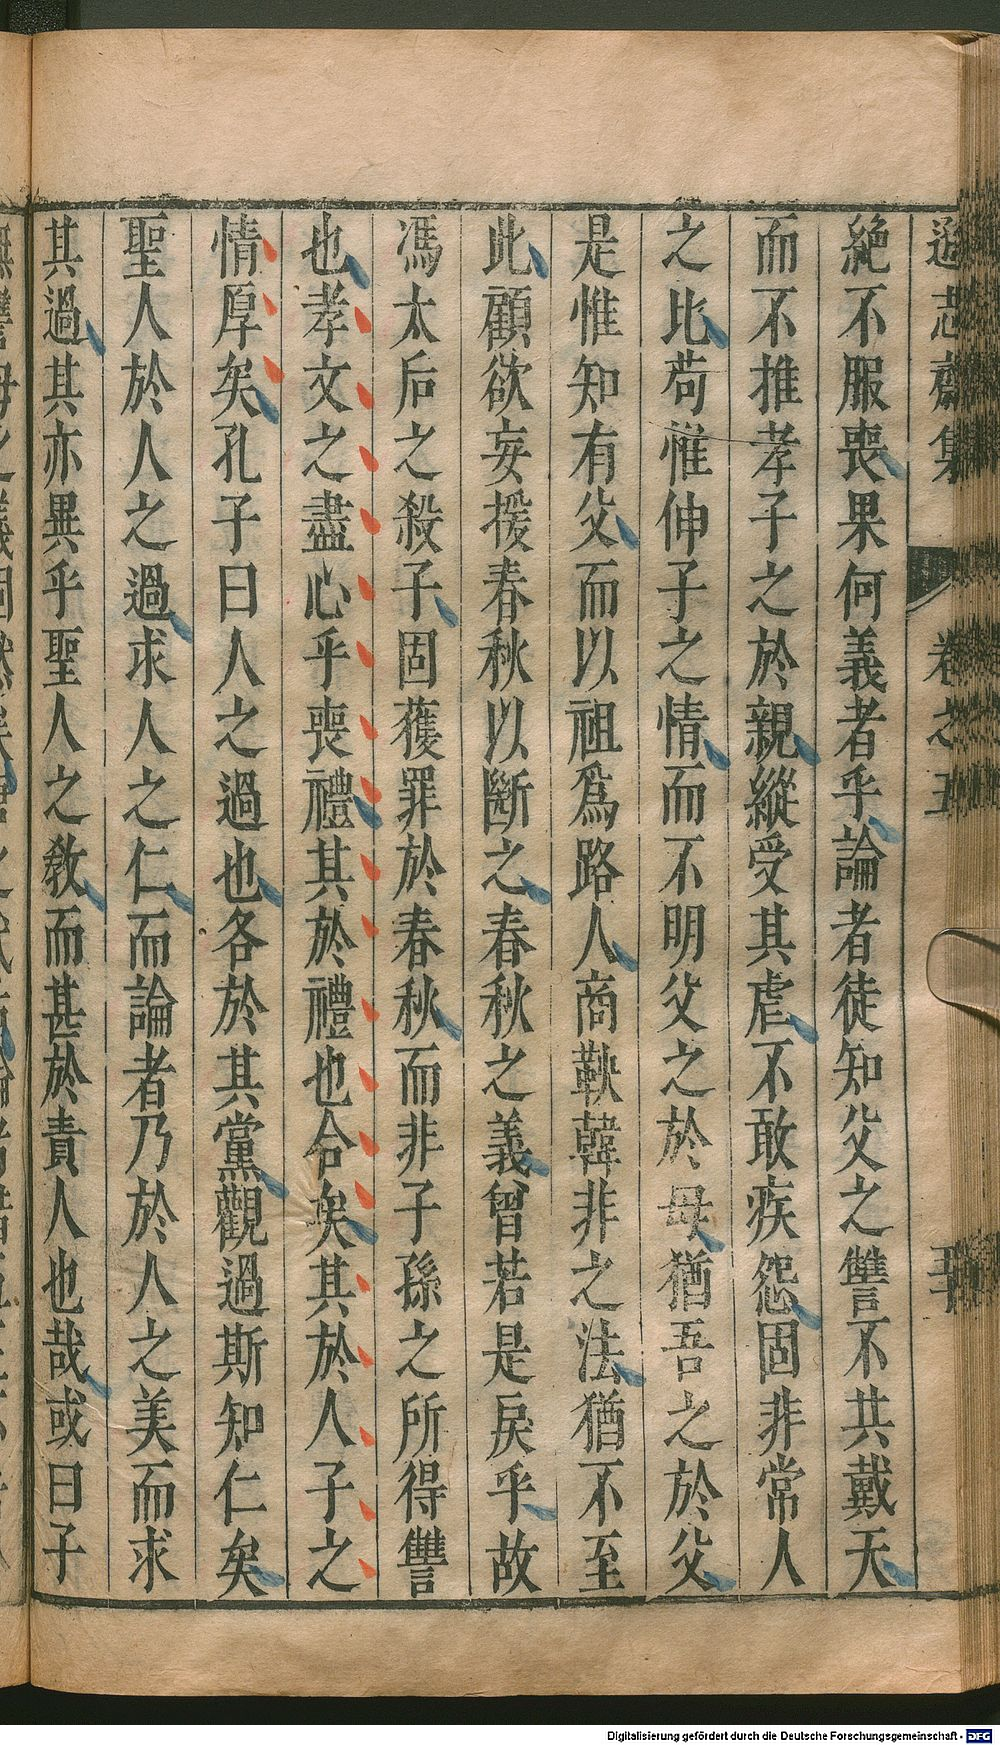 遜志齋集 卷之五 五十
絶不服喪果何義者乎論者徒知父之讐不共戴天
而不推孝子之於親縱受其虐不敢疾怨固非常人
之比苟惟伸子之情而不明父之於母猶吾之於父
是惟知有父而以祖爲路人商鞅韓非之法猶不至
此顧欲妄援春秋以斷之春秋之義曾若是戾乎故
馮太后之殺子固獲罪於春秋而非子孫之所得讐
也孝文之盡心乎喪禮其於禮也合矣其於人子之
情厚矣孔子曰人之過也各於其黨觀過斯知仁矣
聖人於人之過求人之仁而論者乃於人之美而求
其過其亦異乎聖人之敎而甚於責人也哉或曰子
Digitalisierung gefördert durch die Deutsche Forschungsgemeinschaft - DFG